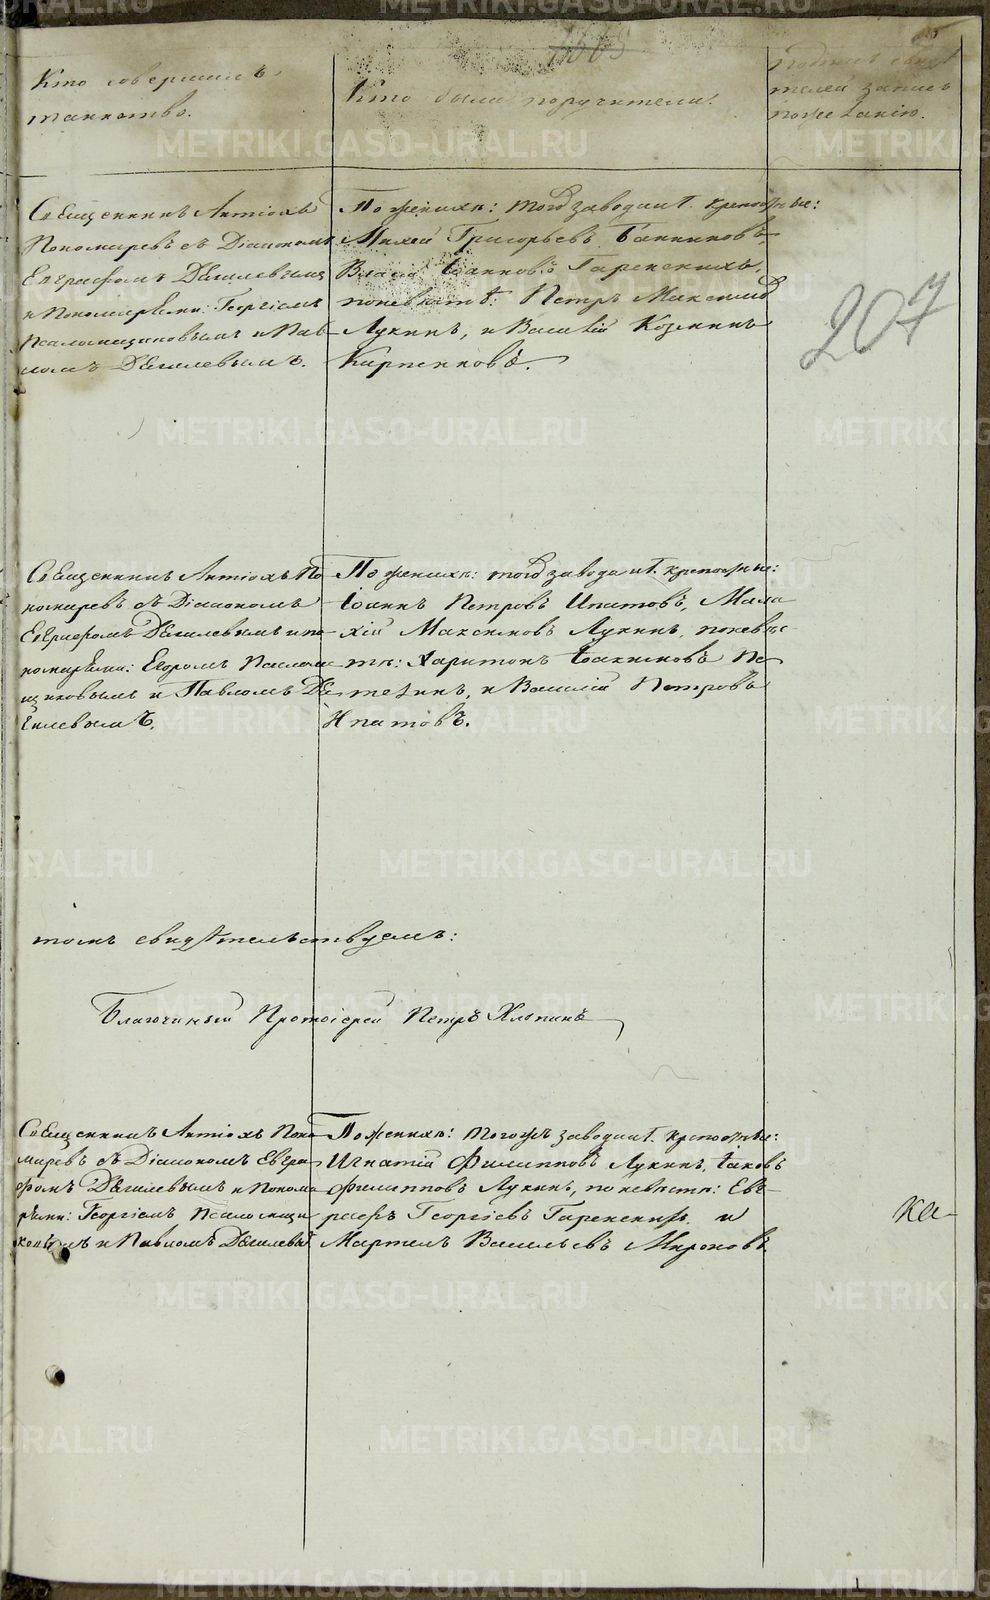 Кто совершалъ
таинство.
Кто были поручители.
телей записи
по желанію.
207
Священникъ Антіохъ
Пономаревъ съ Діакономъ
Евграфомъ Дягилевымъ
и Пономарями: Георгіемъ
Псаломщиковымъ и Пав-
ломъ Дягилевымъ.
По женихѣ: того завода крепостные:
Михей Григорьевъ Банниковъ,
Власъ Іоанновъ Гаренскихъ,
по невѣстѣ: Петръ Максимов
Лукинъ, и Василій Козминъ
Кирпенковъ.
Священникъ Антіохъ По
номаревъ съ Діакономъ
Евграфомъ Дягилевымъ и по
номарями: Егоромъ Псалом
щиковымъ и Павломъ Дя
гилевымъ.
По женихѣ: того завода крепостные:
Іоаннъ Петровъ Ипатовъ, Мала
хій Максимовъ Лукинъ, по невѣс
тѣ: Харитонъ Іоакимовъ
и Василій Петровъ
Ипатовъ.
томъ свидѣтельствуемъ:
Благочинный Протоіерей Петръ Хлопинъ
Священникъ Антіохъ Поно
маревъ съ Діакономъ Евгра
фомъ Дягилевымъ и Понома
рями: Георгіемъ Псаломщи
ковымъ и Павломъ Дягилевым
По женихѣ: того жъ завода крепостные:
Игнатій Филипповъ Лукинъ, Іаковъ
Филипповъ Лукинъ, по невѣстѣ: Ев
графъ Георгіевъ Гаренскихъ и
Мартинъ Васильевъ Мироновъ
ка-
METRIKI.GASO-URAL.RU